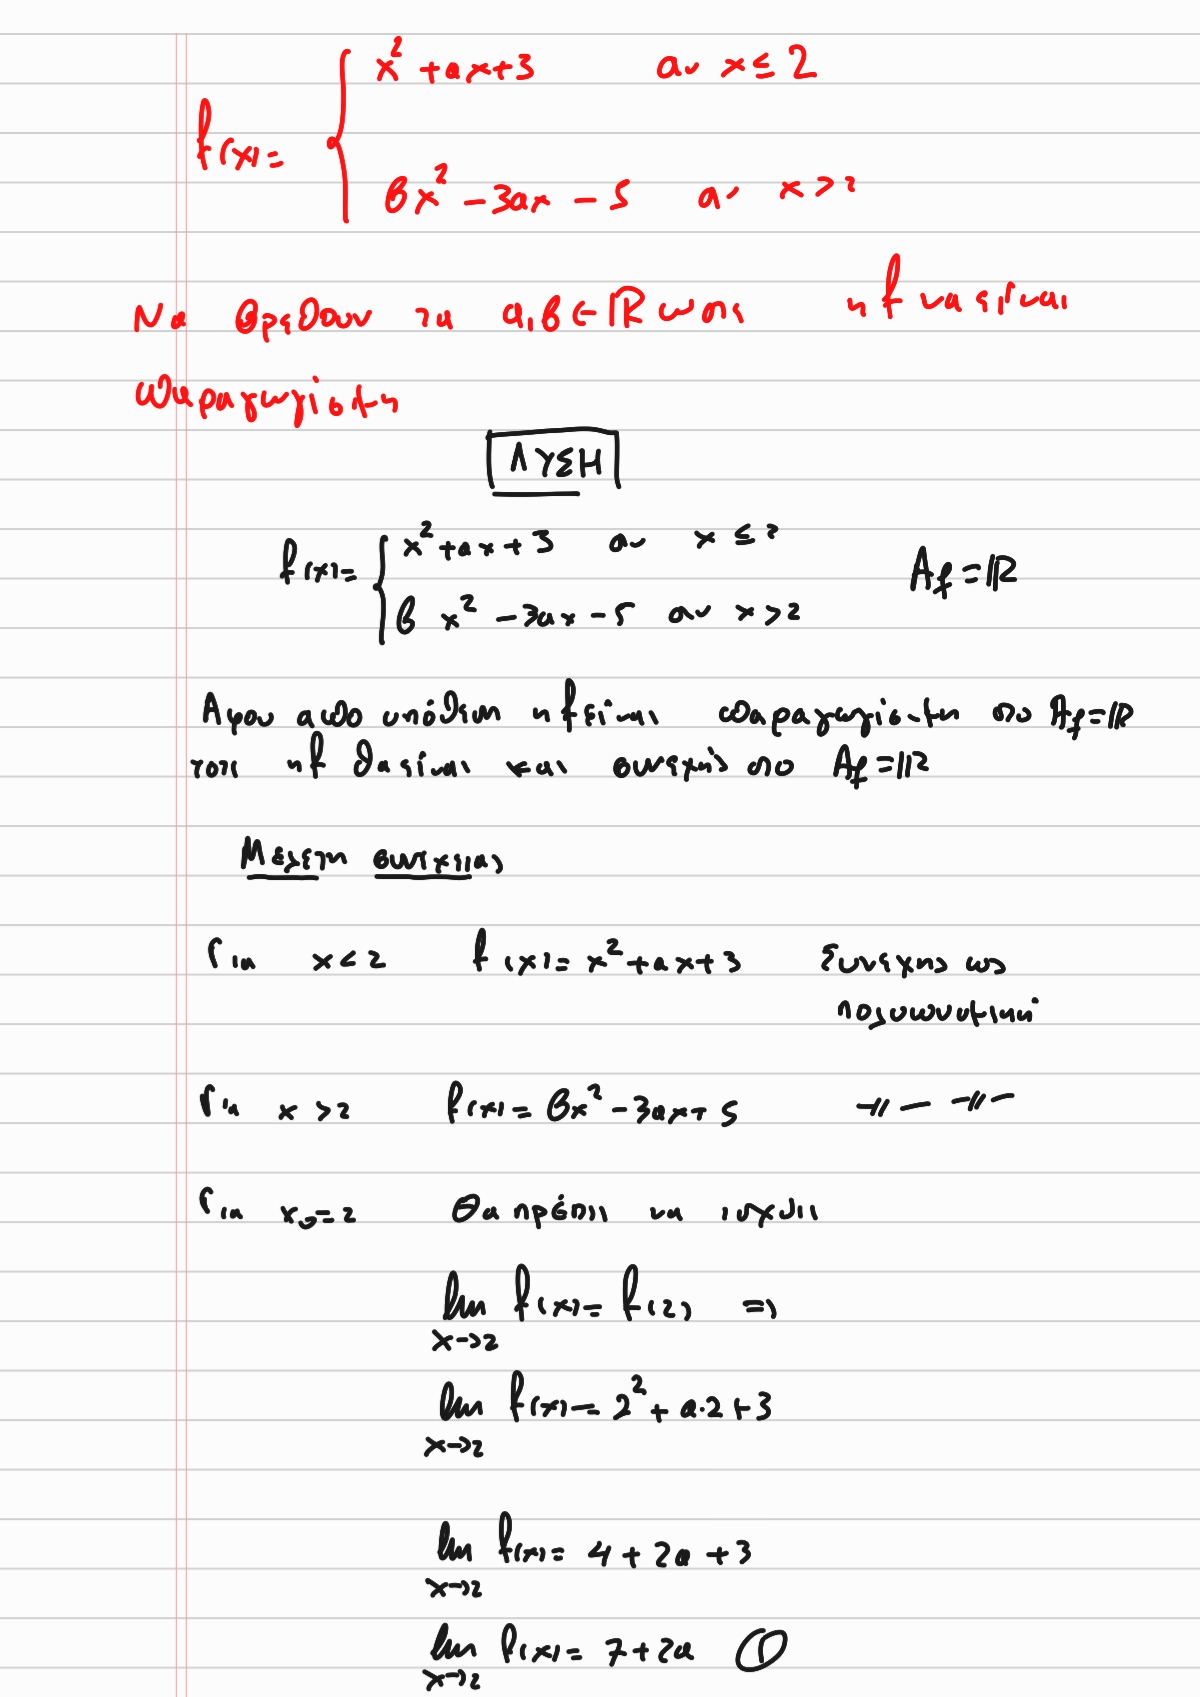 f(x)=
x²+αx+3 αν x≤2
βx²-3αx-5 αν x>2
Να βρεθουν τα α,β∈ℝ ωστε η f να είναι
παραγωγίσιμη
ΛΥΣΗ
f(x)=
x²+αx+3 αν x≤2 A_f=ℝ
βx²-3αx-5 αν x>2
Αφου απο υπόθεση η f είναι παραγωγίσιμη στο A_f=ℝ
τοτε η f θα είναι και συνεχής στο A_f=ℝ
Μελετη συνεχειας
Για x<2 f(x)=x²+αx+3 Συνεχης ως
πολυωνυμική
Για x>2 f(x)=βx²-3αx-5 -//- -//-
Για x₀=2 Θα πρέπει να ισχυει
lim f(x)=f(2) =>
x→2
lim f(x)=2²+α·2+3
x→2
lim f(x)=4+2α+3
x→2
lim f(x)=7+2α ①
x→2